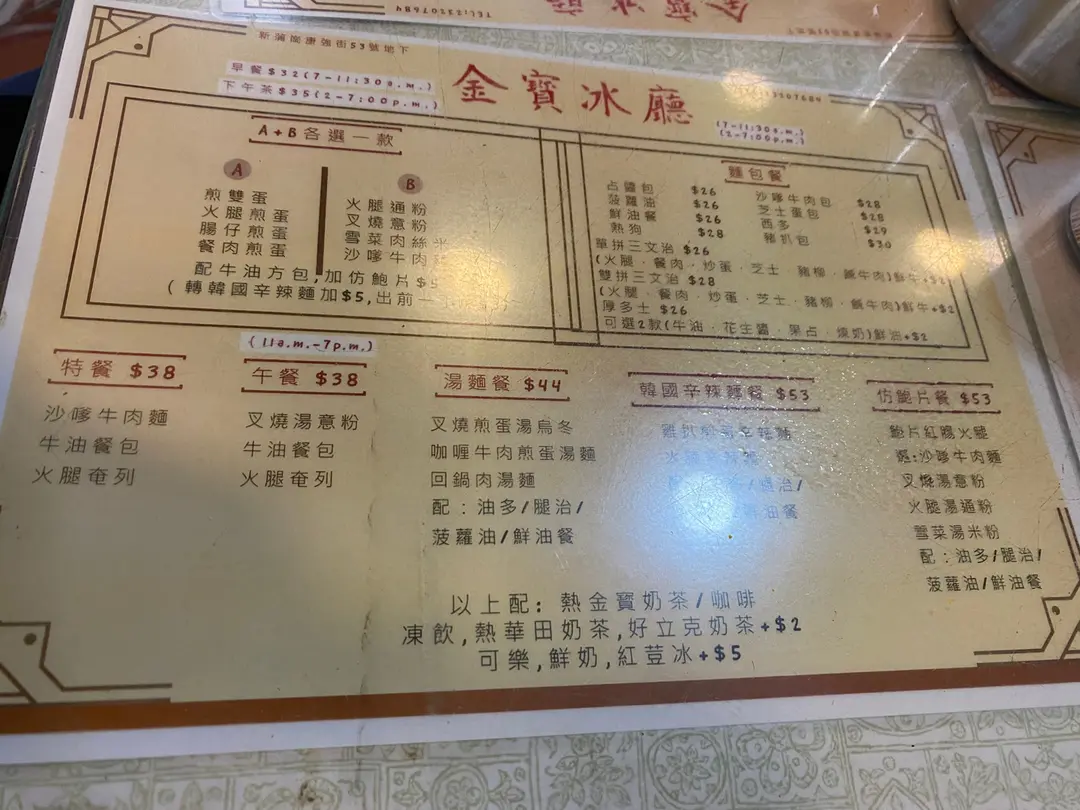 TEL:23207684
金寶冰廳
新蒲崗康強街53號地下
早餐$32(7-11:30a.m.)
下午茶$35(2-7:00p.m.)
金寶冰廳
(7-11:30a.m.)
(2-7:00p.m.)
A+B各選一款
A
煎雙蛋
火腿煎蛋
腸仔煎蛋
餐肉煎蛋
B
火腿通粉
叉燒意粉
雪菜肉絲米
沙嗲牛肉
配牛油方包,加仿鮑片$5
(轉韓國辛辣麵加$5,出前一
麵包餐
占醬包 $26
菠蘿油 $26
鮮油餐 $26
熱狗 $28
沙嗲牛肉包 $28
芝士蛋包 $28
西多 $29
豬扒包 $30
單拼三文治 $26
(火腿．餐肉．炒蛋．芝士．豬柳．鹹牛肉)鮮牛+$2
雙拼三文治 $28
(火腿．餐肉．炒蛋．芝士．豬柳．鹹牛肉)鮮牛+$2
厚多士 $26
可選2款(牛油．花生醬．果占．煉奶)鮮油+$2
(11a.m.-7p.m.)
特餐 $38
沙嗲牛肉麵
牛油餐包
火腿奄列
午餐 $38
叉燒湯意粉
牛油餐包
火腿奄列
湯麵餐 $44
叉燒煎蛋湯烏冬
咖喱牛肉煎蛋湯麵
回鍋肉湯麵
配：油多/腿治/
菠蘿油/鮮油餐
韓國辛辣麵餐 $53
雞扒 辛辣麵
火腿
/腿治/
油餐
仿鮑片餐 $53
鮑片紅腸火腿
選:沙嗲牛肉麵
叉燒湯意粉
火腿湯通粉
雪菜湯米粉
配：油多/腿治/
菠蘿油/鮮油餐
以上配: 熱金寶奶茶/咖啡
凍飲,熱華田奶茶,好立克奶茶+$2
可樂,鮮奶,紅荳冰+$5